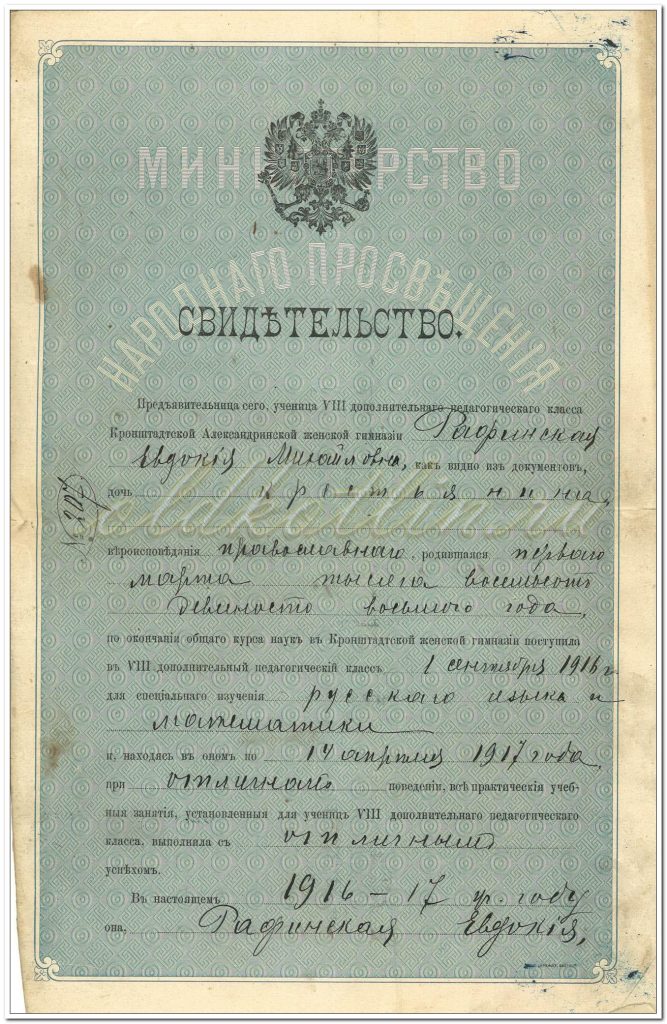 МИНИСТЕРСТВО
НАРОДНАГО ПРОСВѢЩЕНІЯ
СВИДѢТЕЛЬСТВО.
Предъявительница сего, ученица VIII дополнительнаго педагогическаго класса
Кронштадтской Александринской женской гимназіи Рафинская
Евдокія Михайловна, какъ видно изъ документовъ,
дочь крестьянина,
№ 207
вѣроисповѣданія православнаго, родившаяся перваго
марта тысяча восемьсотъ
девяносто восьмого года,
по окончаніи общаго курса наукъ въ Кронштадтской женской гимназіи поступила
въ VIII дополнительный педагогическій классъ 1 сентября 1916 г.
для спеціальнаго изученія русскаго языка и
математики
и, находясь въ ономъ по 14 апрѣля 1917 года,
при отличномъ поведеніи, всѣ практическія учеб-
ныя занятія, установленныя для ученицъ VIII дополнительнаго педагогическаго
класса, выполнила съ отличнымъ
успѣхомъ.
Въ настоящемъ 1916–17 у. году
она, Рафинская Евдокія,
oldketlin.ru